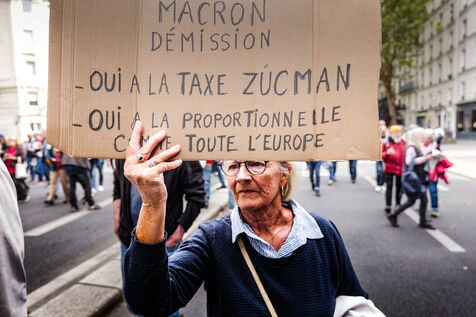 MACRON
DÉMISSION
- OUI A LA TAXE ZÜCMAN
- OUI A LA PROPORTIONNELLE
TOUTE L'EUROPE